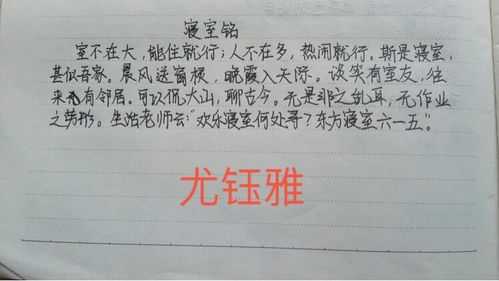 寝室铭
室不在大，能住就行；人不在多，热闹就行。斯是寝室，
甚似吾家。晨风送窗棂，晚霞入天际。谈笑有室友，往
来有邻居。可以侃大山，聊古今。无是非之乱耳，无作业
之劳形。生活老师云："欢乐寝室何处寻？东方寝室六一五"。
尤钰雅